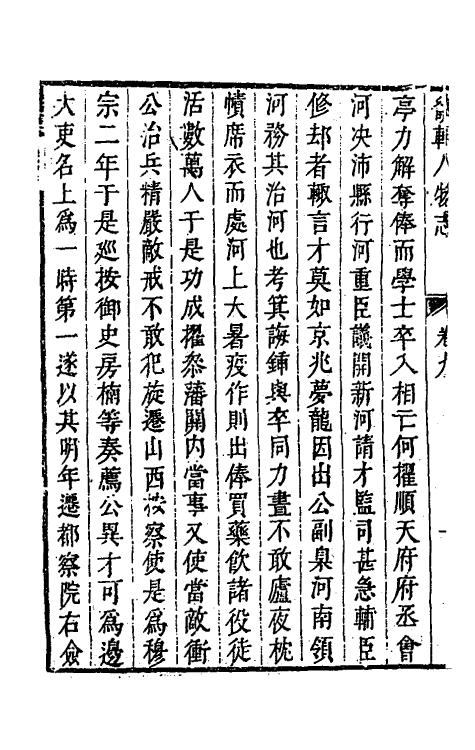 畿輔人物志 卷九 一
亭力解奪俸而學士卒入相亡何擢順天府府丞會
河决沛縣行河重臣議開新河請才監司甚急輔臣
修却者輙言才莫如京兆夢龍因出公副臬河南領
河務其治河也考箕誨鍤與卒同力晝不敢廬夜枕
幘席衣而處河上大暑疫作則出俸買藥飲諸役徒
活數萬人于是功成擢叅藩關内當事又使當敵衝
公治兵精嚴敵戒不敢犯旋遷山西按察使是爲穆
宗二年于是廵按御史房楠等奏薦公異才可爲邊
大吏名上爲一時第一遂以其明年遷都察院右僉